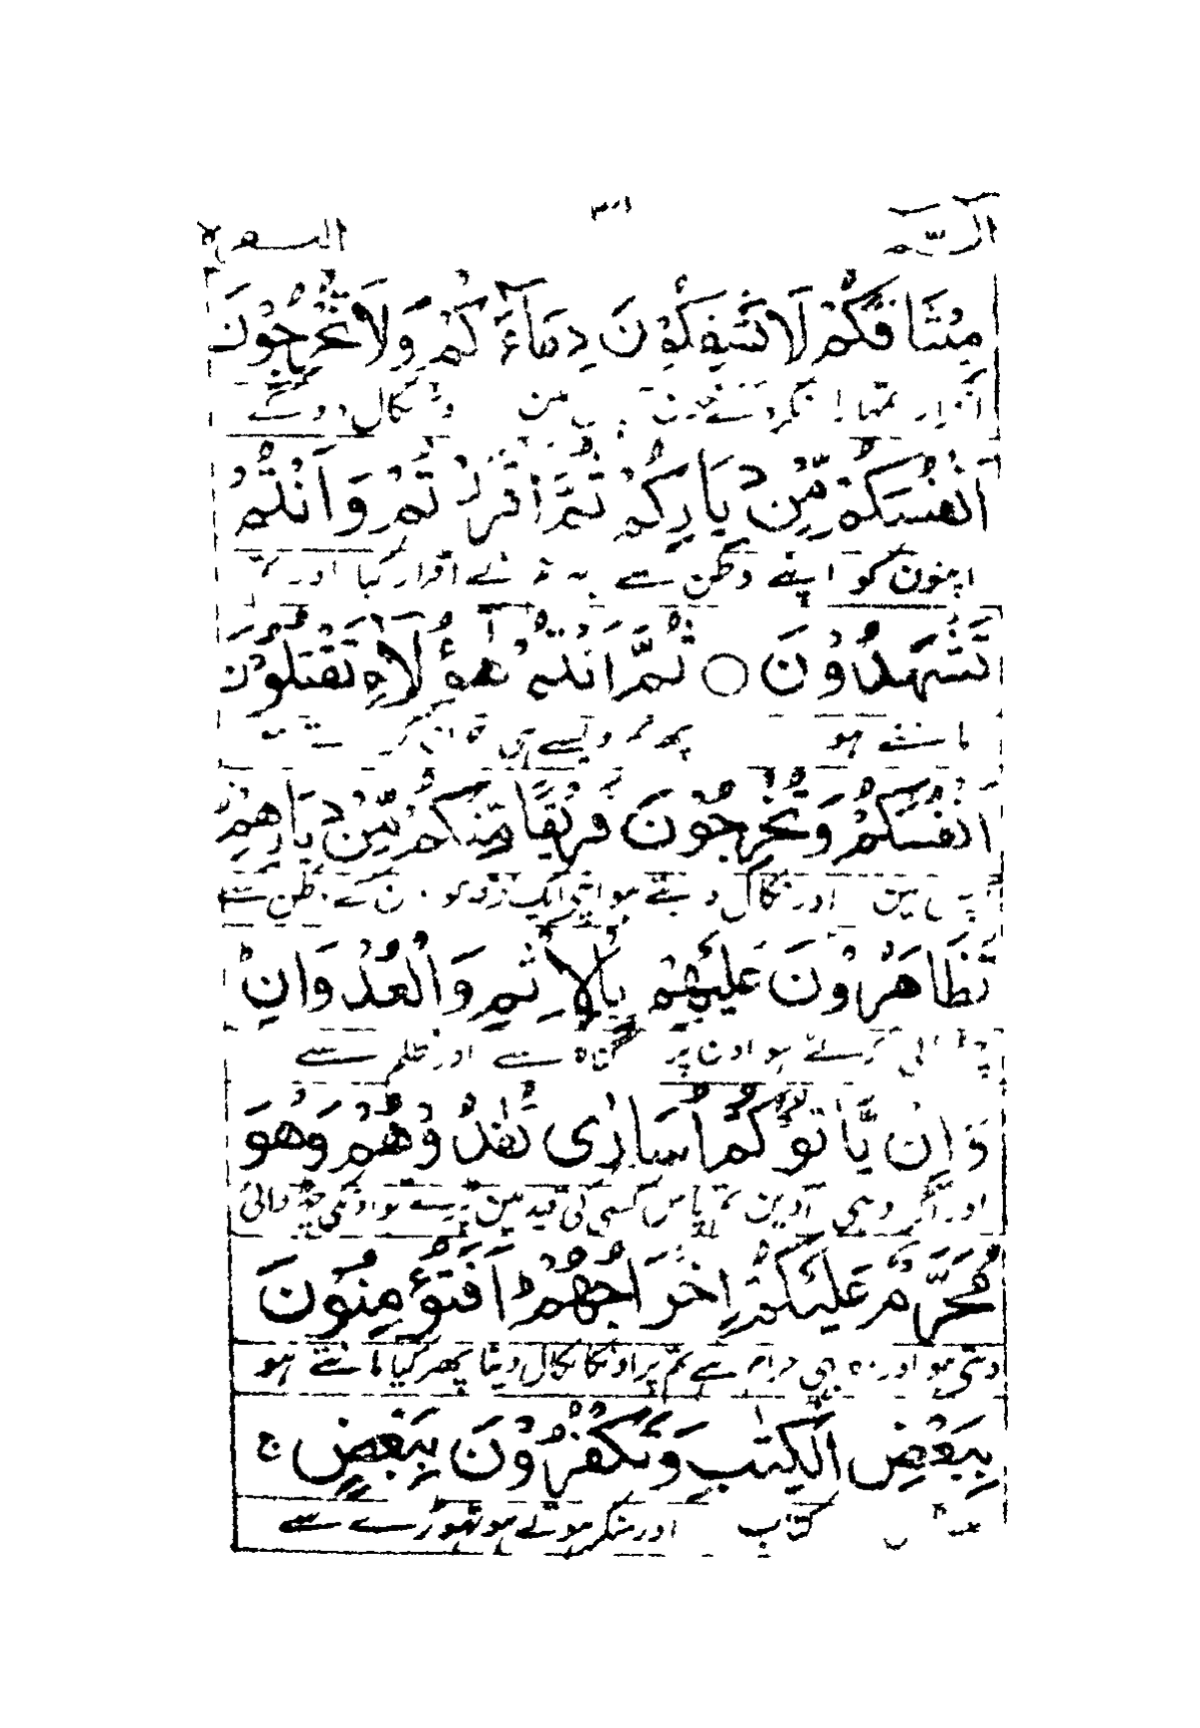 الٓمّٓ
البقرة
مِيْثَاقَكُمْ لَا تَسْفِكُوْنَ دِمَآءَكُمْ وَلَا تُخْرِجُوْنَ
نکال دوگے
اَنْفُسَكُمْ مِّنْ دِيَارِكُمْ ثُمَّ اَقْرَرْتُمْ وَاَنْتُمْ
اپنون کو اپنے وطن سے نے اقرار کیا اور
تَشْهَدُوْنَ ○ ثُمَّ اَنْتُمْ هٰٓؤُلَآءِ تَقْتُلُوْنَ
مانتے ہو پھر تم ویسے ہی
اَنْفُسَكُمْ وَتُخْرِجُوْنَ فَرِيْقًا مِّنْكُمْ مِّنْ دِيَارِهِمْ
اور نکال دیتے ہو اپنے ایک وطن سے
تَظَاهَرُوْنَ عَلَيْهِمْ بِالْاِثْمِ وَالْعُدْوَانِ ط
کرتے ہو اون پر گناہ سے اور ظلم سے
وَاِنْ يَّاْتُوْكُمْ اُسَارٰى تُفٰدُوْهُمْ وَهُوَ
اور اگر وہی آوین تم پاس کسی کی قید مین پڑے تو اونکی چھڑوائی
مُحَرَّمٌ عَلَيْكُمْ اِخْرَاجُهُمْ ط اَفَتُؤْمِنُوْنَ
دیتی ہو اور وہ بھی حرام ہے تم پر اونکا نکال دینا پھر کیا مانتے ہو
بِبَعْضِ الْكِتٰبِ وَتَكْفُرُوْنَ بِبَعْضٍ ج
کتاب اور منکر ہوتے ہو تھوڑے سے